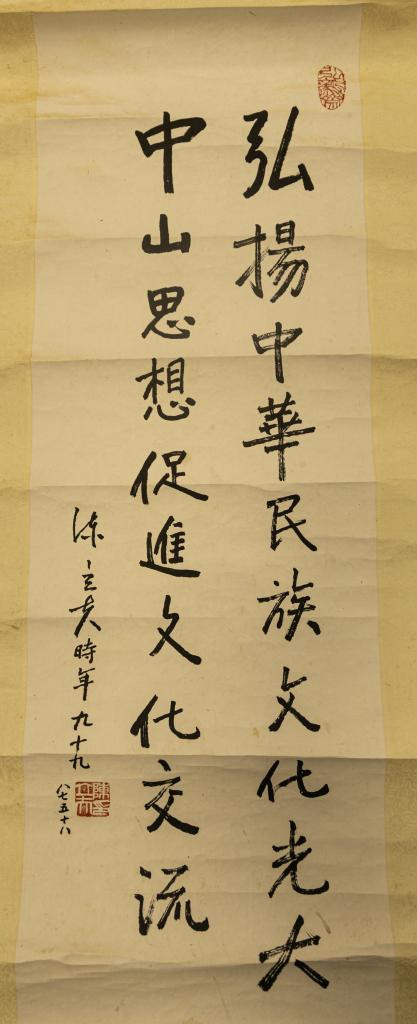 弘揚中華民族文化光大
中山思想促進文化交流
陳立夫時年九十九
八七五十八